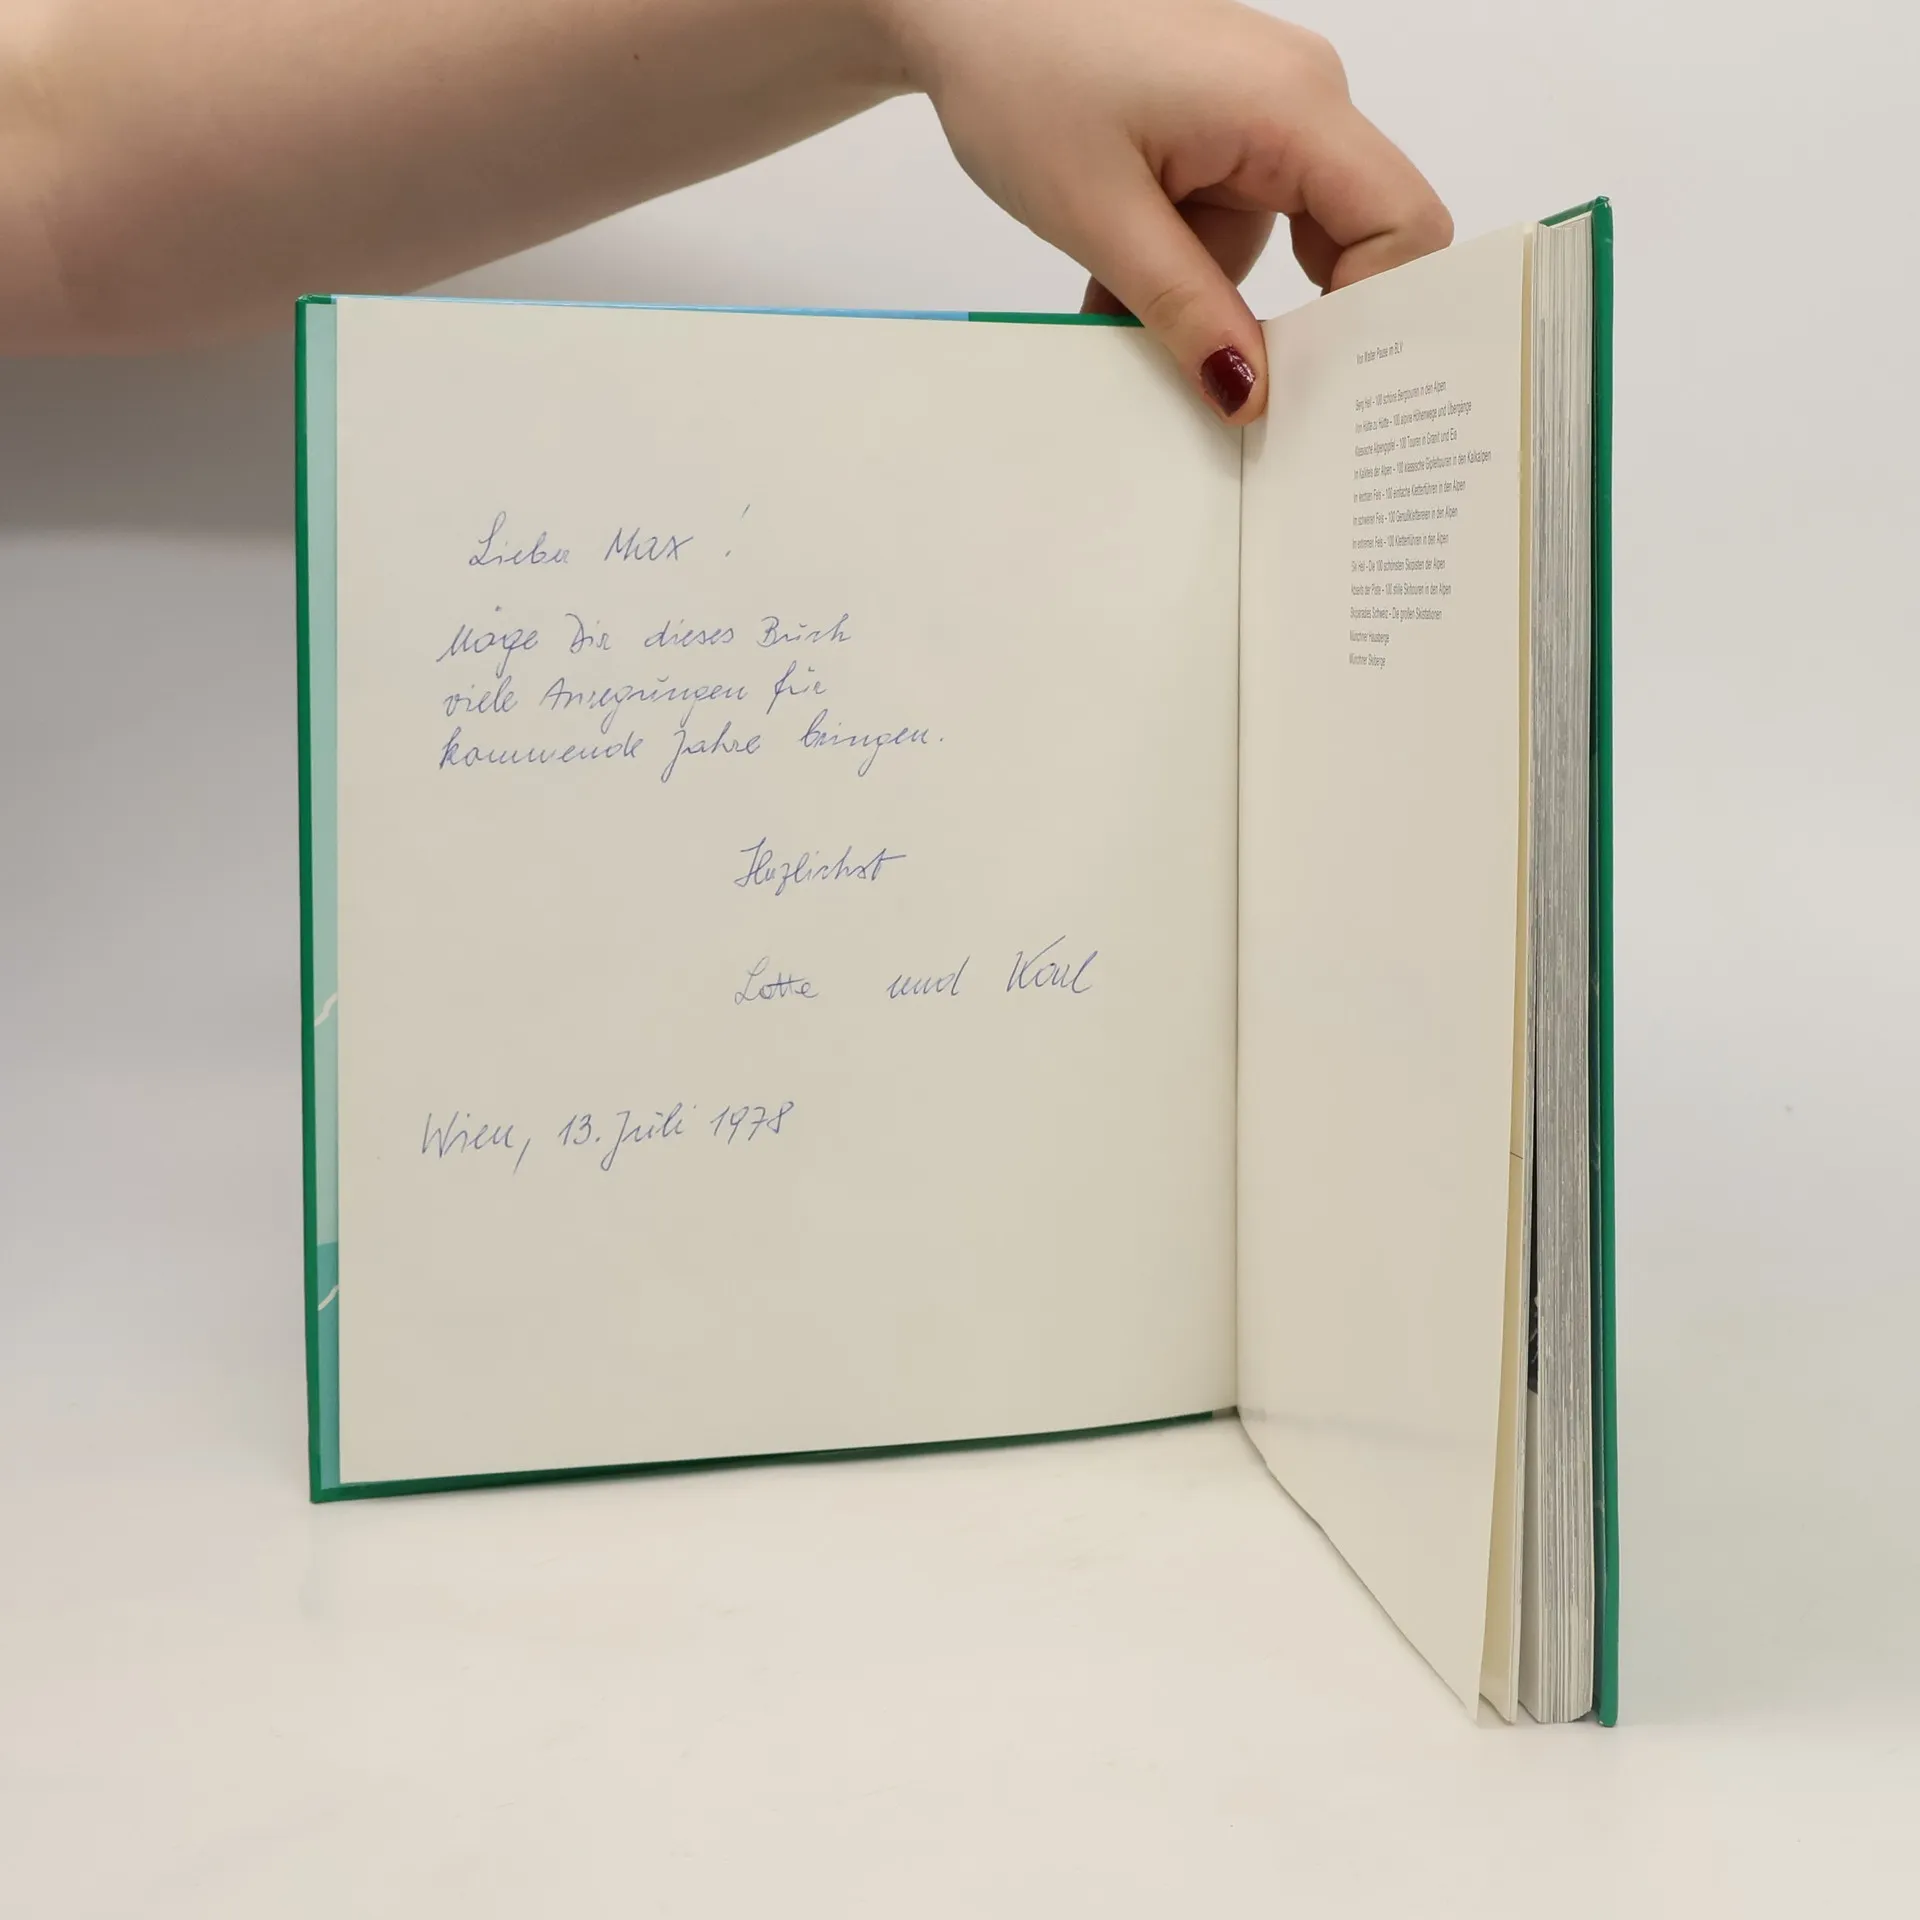 Lieber Max!
Möge Dir dieses Buch
viele Anregungen für
kommende Jahre bringen.
Herzlichst
Lotte und Karl
Wien, 13. Juli 1978
Von Walter Pause im BLV
Berg Heil – 100 schöne Bergtouren in den Alpen
Von Hütte zu Hütte – 100 alpine Höhenwege und Übergänge
Klassische Alpengipfel – 100 Touren in Granit und Eis
Im Kalkfels der Alpen – 100 klassische Gipfeltouren in den Kalkalpen
Im leichten Fels – 100 einfache Kletterführen in den Alpen
Im schweren Fels – 100 Genußklettereien in den Alpen
Im extremen Fels – 100 Kletterführen in den Alpen
Ski Heil – Die 100 schönsten Skipisten der Alpen
Abseits der Piste – 100 stille Skitouren in den Alpen
Skiparadies Schweiz – Die großen Skistationen
Münchner Hausberge
Münchner Skiberge